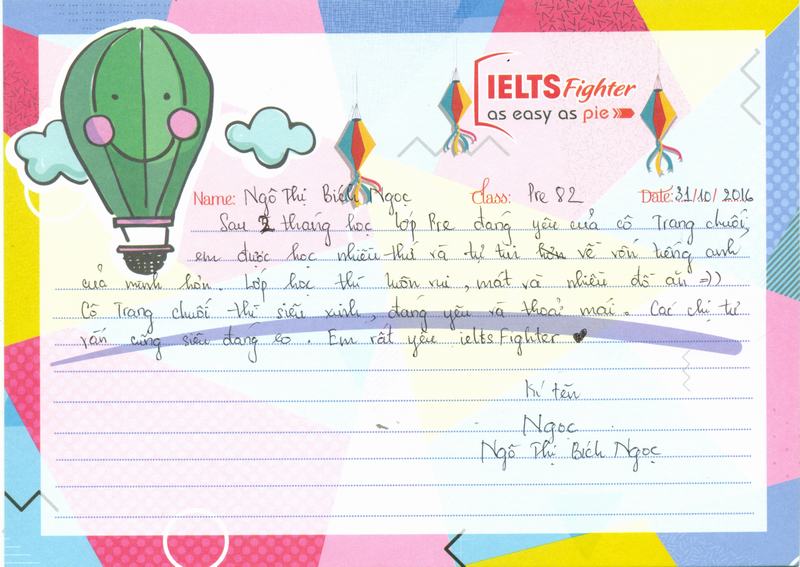 IELTS Fighter
as easy as pie
Name: Ngô Thị Bích Ngọc Class: Pre 82 Date: 31/10/2016
Sau 2 tháng học lớp Pre đáng yêu của cô Trang chuối,
em được học nhiều thứ và tự tin hơn về vốn tiếng anh
của mình hơn. Lớp học thì luôn vui, mát và nhiều đồ ăn =))
Cô Trang chuối thì siêu xinh, đáng yêu và thoải mái. Các chị tư
vấn cũng siêu đáng eo. Em rất yêu ielts Fighter
Kí tên
Ngọc
Ngô Thị Bích Ngọc